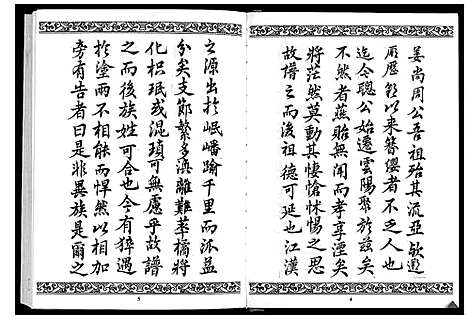 姜尚周公吾祖殆其流亞歟遡
厥歷朝以來簪纓者不乏人也
迄令聰公始遷雲陽聚於茲矣
不然者燕貽無聞而孝享湮矣
將茫然莫動其悽愴怵惕之思
故譜之而後祖德可延也江漢
4
之源出於岷嶓踰千里而派益
分矣支節繁多渙離難萃橘將
化枳珉或混瑣可無慮乎故譜
之而後族姓可合也今有猝遇
於塗雨不相能而悍然以相
旁有告者曰是非異族是爾之
5